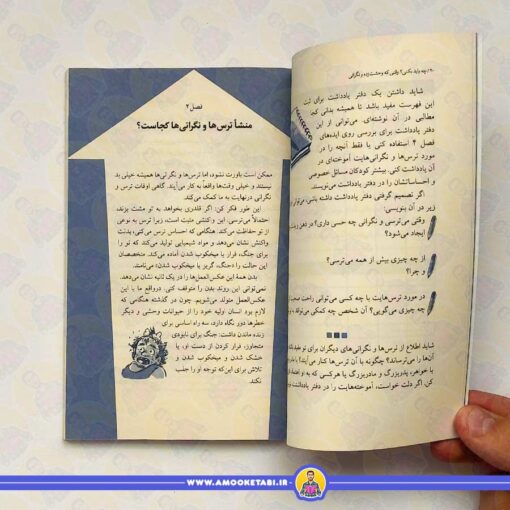 ۲۰/چه باید بکنی؟ وقتی که وحشت‌زده و نگرانی
شاید داشتن یک دفتر یادداشت برای ثبت
این فهرست مفید باشد تا همیشه بدانی کجا
مطالبی در آن نوشته‌ای. می‌توانی از این
دفتر یادداشت برای بررسی روی ایده‌های
فصل ۴ استفاده کنی یا فقط آنچه را در
مورد ترس‌ها و نگرانی‌هایت آموخته‌ای در
آن یادداشت کنی. بیشتر کودکان مسائل خصوصی
و احساساتشان را در دفتر یادداشت می‌نویسند.
اگر تصمیم گرفتی دفتر یادداشتی داشته باشی، می‌توانی
زیر در آن بنویسی:
وقتی می‌ترسی و نگرانی چه حسی داری؟ در ذهن
ایجاد می‌شود؟
از چه چیزی بیش از همه می‌ترسی؟
و چرا؟
در مورد ترس‌هایت با چه کسی می‌توانی راحت
چه چیزی می‌گویی؟ آن شخص چه کمکی می‌تواند
شاید اطلاع از ترس‌ها و نگرانی‌های دیگران برای تو مفید
آن‌ها را می‌ترساند؟ چگونه با آن ترس‌ها کنار می‌آیند؟ با
یا خواهر، پدربزرگ و مادربزرگ یا هرکسی که به او اعتماد
کن. اگر دلت خواست، آموخته‌هایت را در دفتر یادداشت
فصل ۲
منشأ ترس‌ها و نگرانی‌ها کجاست؟
ممکن است باورت نشود، اما ترس‌ها و نگرانی‌ها همیشه خیلی بد
نیستند و خیلی وقت‌ها واقعاً به کار می‌آیند. گاهی اوقات ترس و
نگرانی درنهایت به ما کمک می‌کند.
این طور فکر کن: اگر قلدری بخواهد به تو مشت بزند،
احتمالاً می‌ترسی. این واکنش مثبت است، زیرا ترس به نوعی
از تو حفاظت می‌کند. هنگامی که احساس ترس می‌کنی، بدنت
واکنش نشان می‌دهد و مواد شیمیایی تولید می‌کند که تو را
برای جنگ، فرار یا میخکوب شدن آماده می‌کند. متخصصان
این حالت را «جنگ، گریز یا میخکوب شدن» می‌نامند.
بدن همه این عکس‌العمل‌ها را در یک ثانیه نشان می‌دهد.
نمی‌توانی این روند بدن را متوقف کنی. درواقع ما با این
عکس‌العمل متولد می‌شویم. چون در گذشته هنگامی که
لازم بود انسان اولیه خود را از حیوانات وحشی و دیگر
خطرها دور نگاه دارد، سه راه اساسی برای
زنده ماندن داشت: جنگ برای نابودی
متجاوز، فرار کردن از دست او، یا
خشک شدن و میخکوب شدن و
تلاش برای این‌که توجه او را جلب
نکند.
WWW.AMOOKETABI.IR